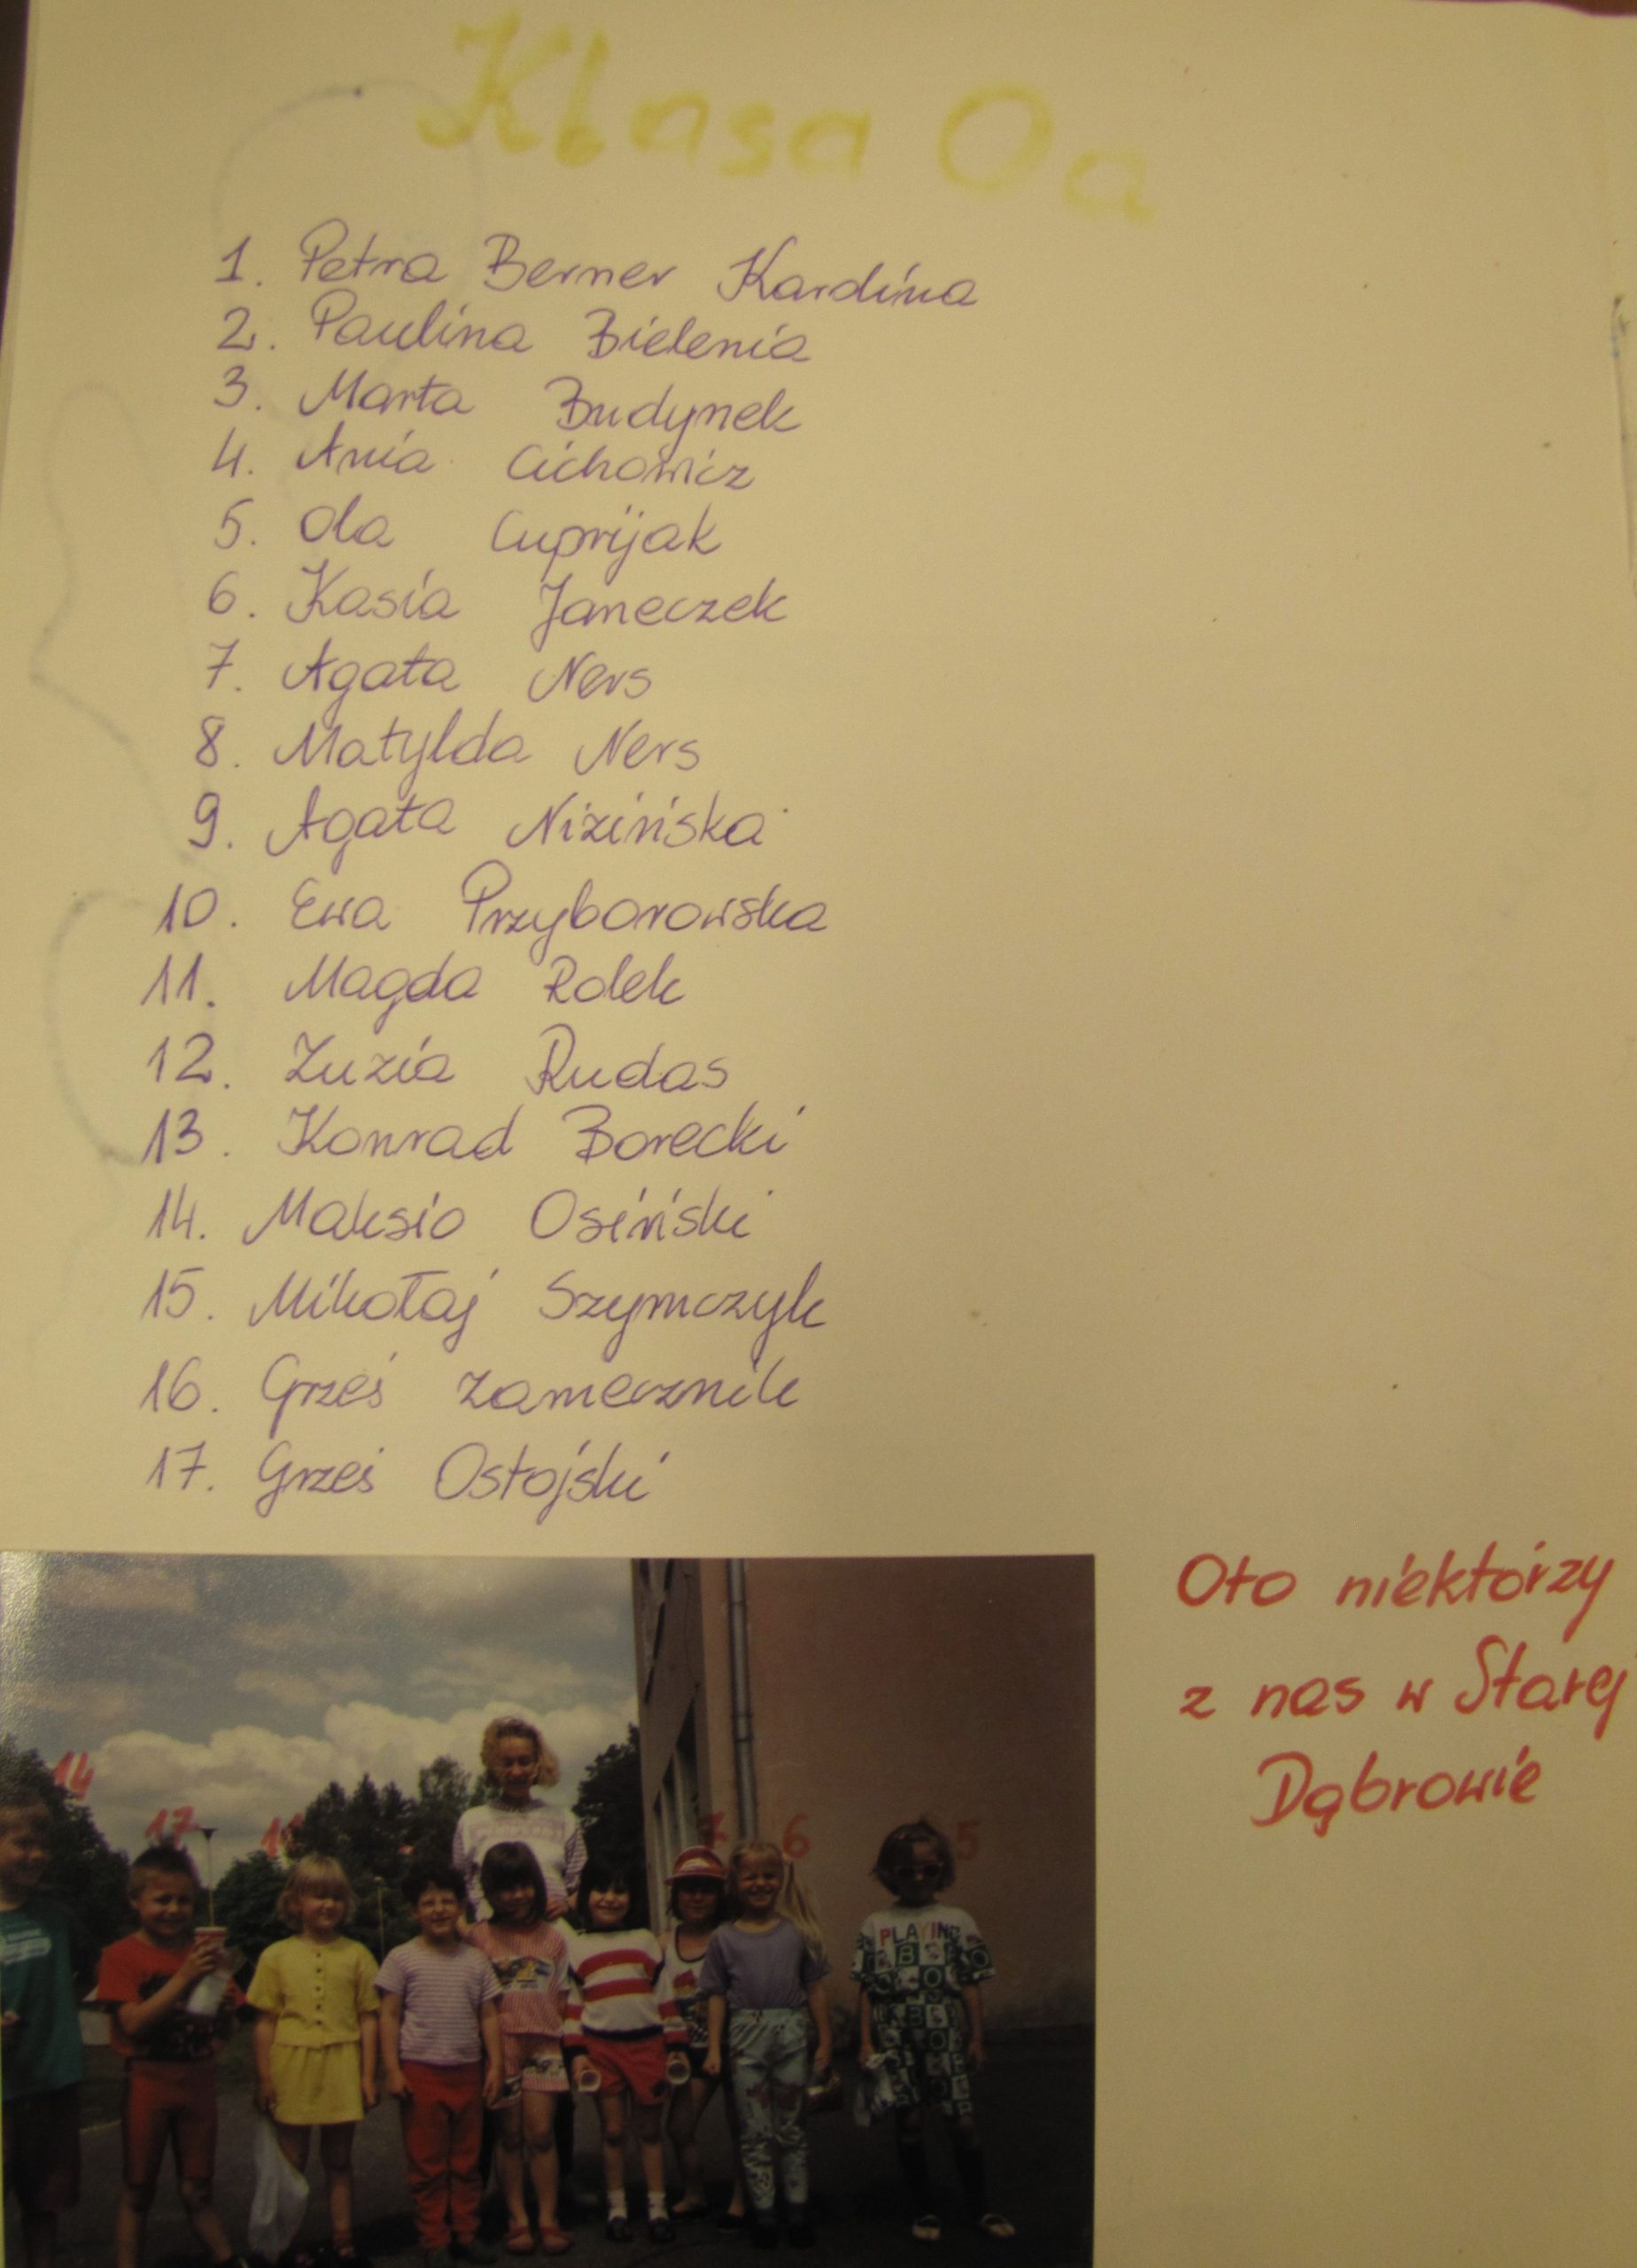 Klasa Oa
1. Petra Berner Kardina
2. Paulina Bielenia
3. Marta Budynek
4. Ania Cichowicz
5. Ola Cuprijak
6. Kasia Janeczek
7. Agata Ners
8. Matylda Ners
9. Agata Nizińska
10. Ewa Przyborowska
11. Magda Rolek
12. Zuzia Rudas
13. Konrad Borecki
14. Maksio Osiński
15. Mikołaj Szymczyk
16. Grześ Zamecznik
17. Grześ Ostojski
Oto niektórzy
z nas w Starej
Dąbrowie
14
17
7
6
5
PLAYING